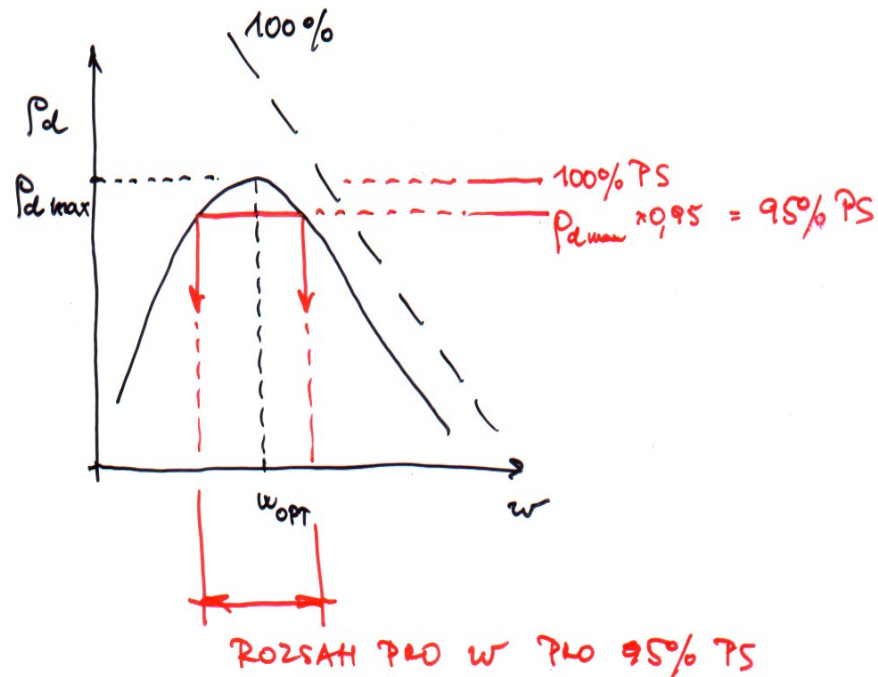 100%
ρd
ρd max
100% PS
ρd max × 0,95 = 95% PS
wOPT
w
ROZSAH PRO w PRO 95% PS